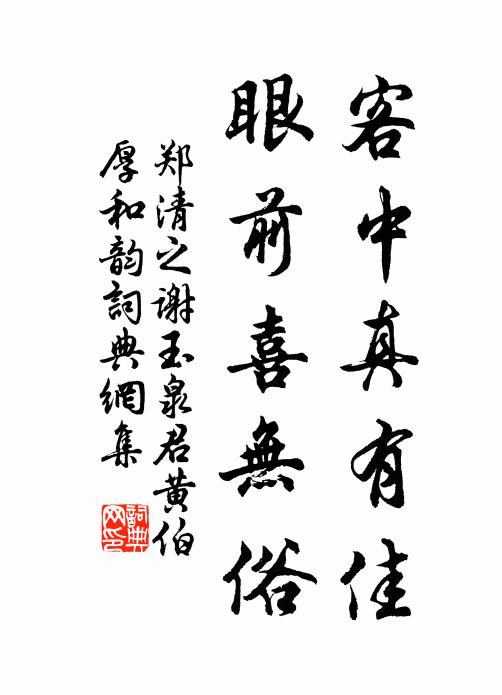 客中真有佳
眼前喜無俗
郑清之谢玉泉君黄伯
厚和韵詞典網集
詞典
网印